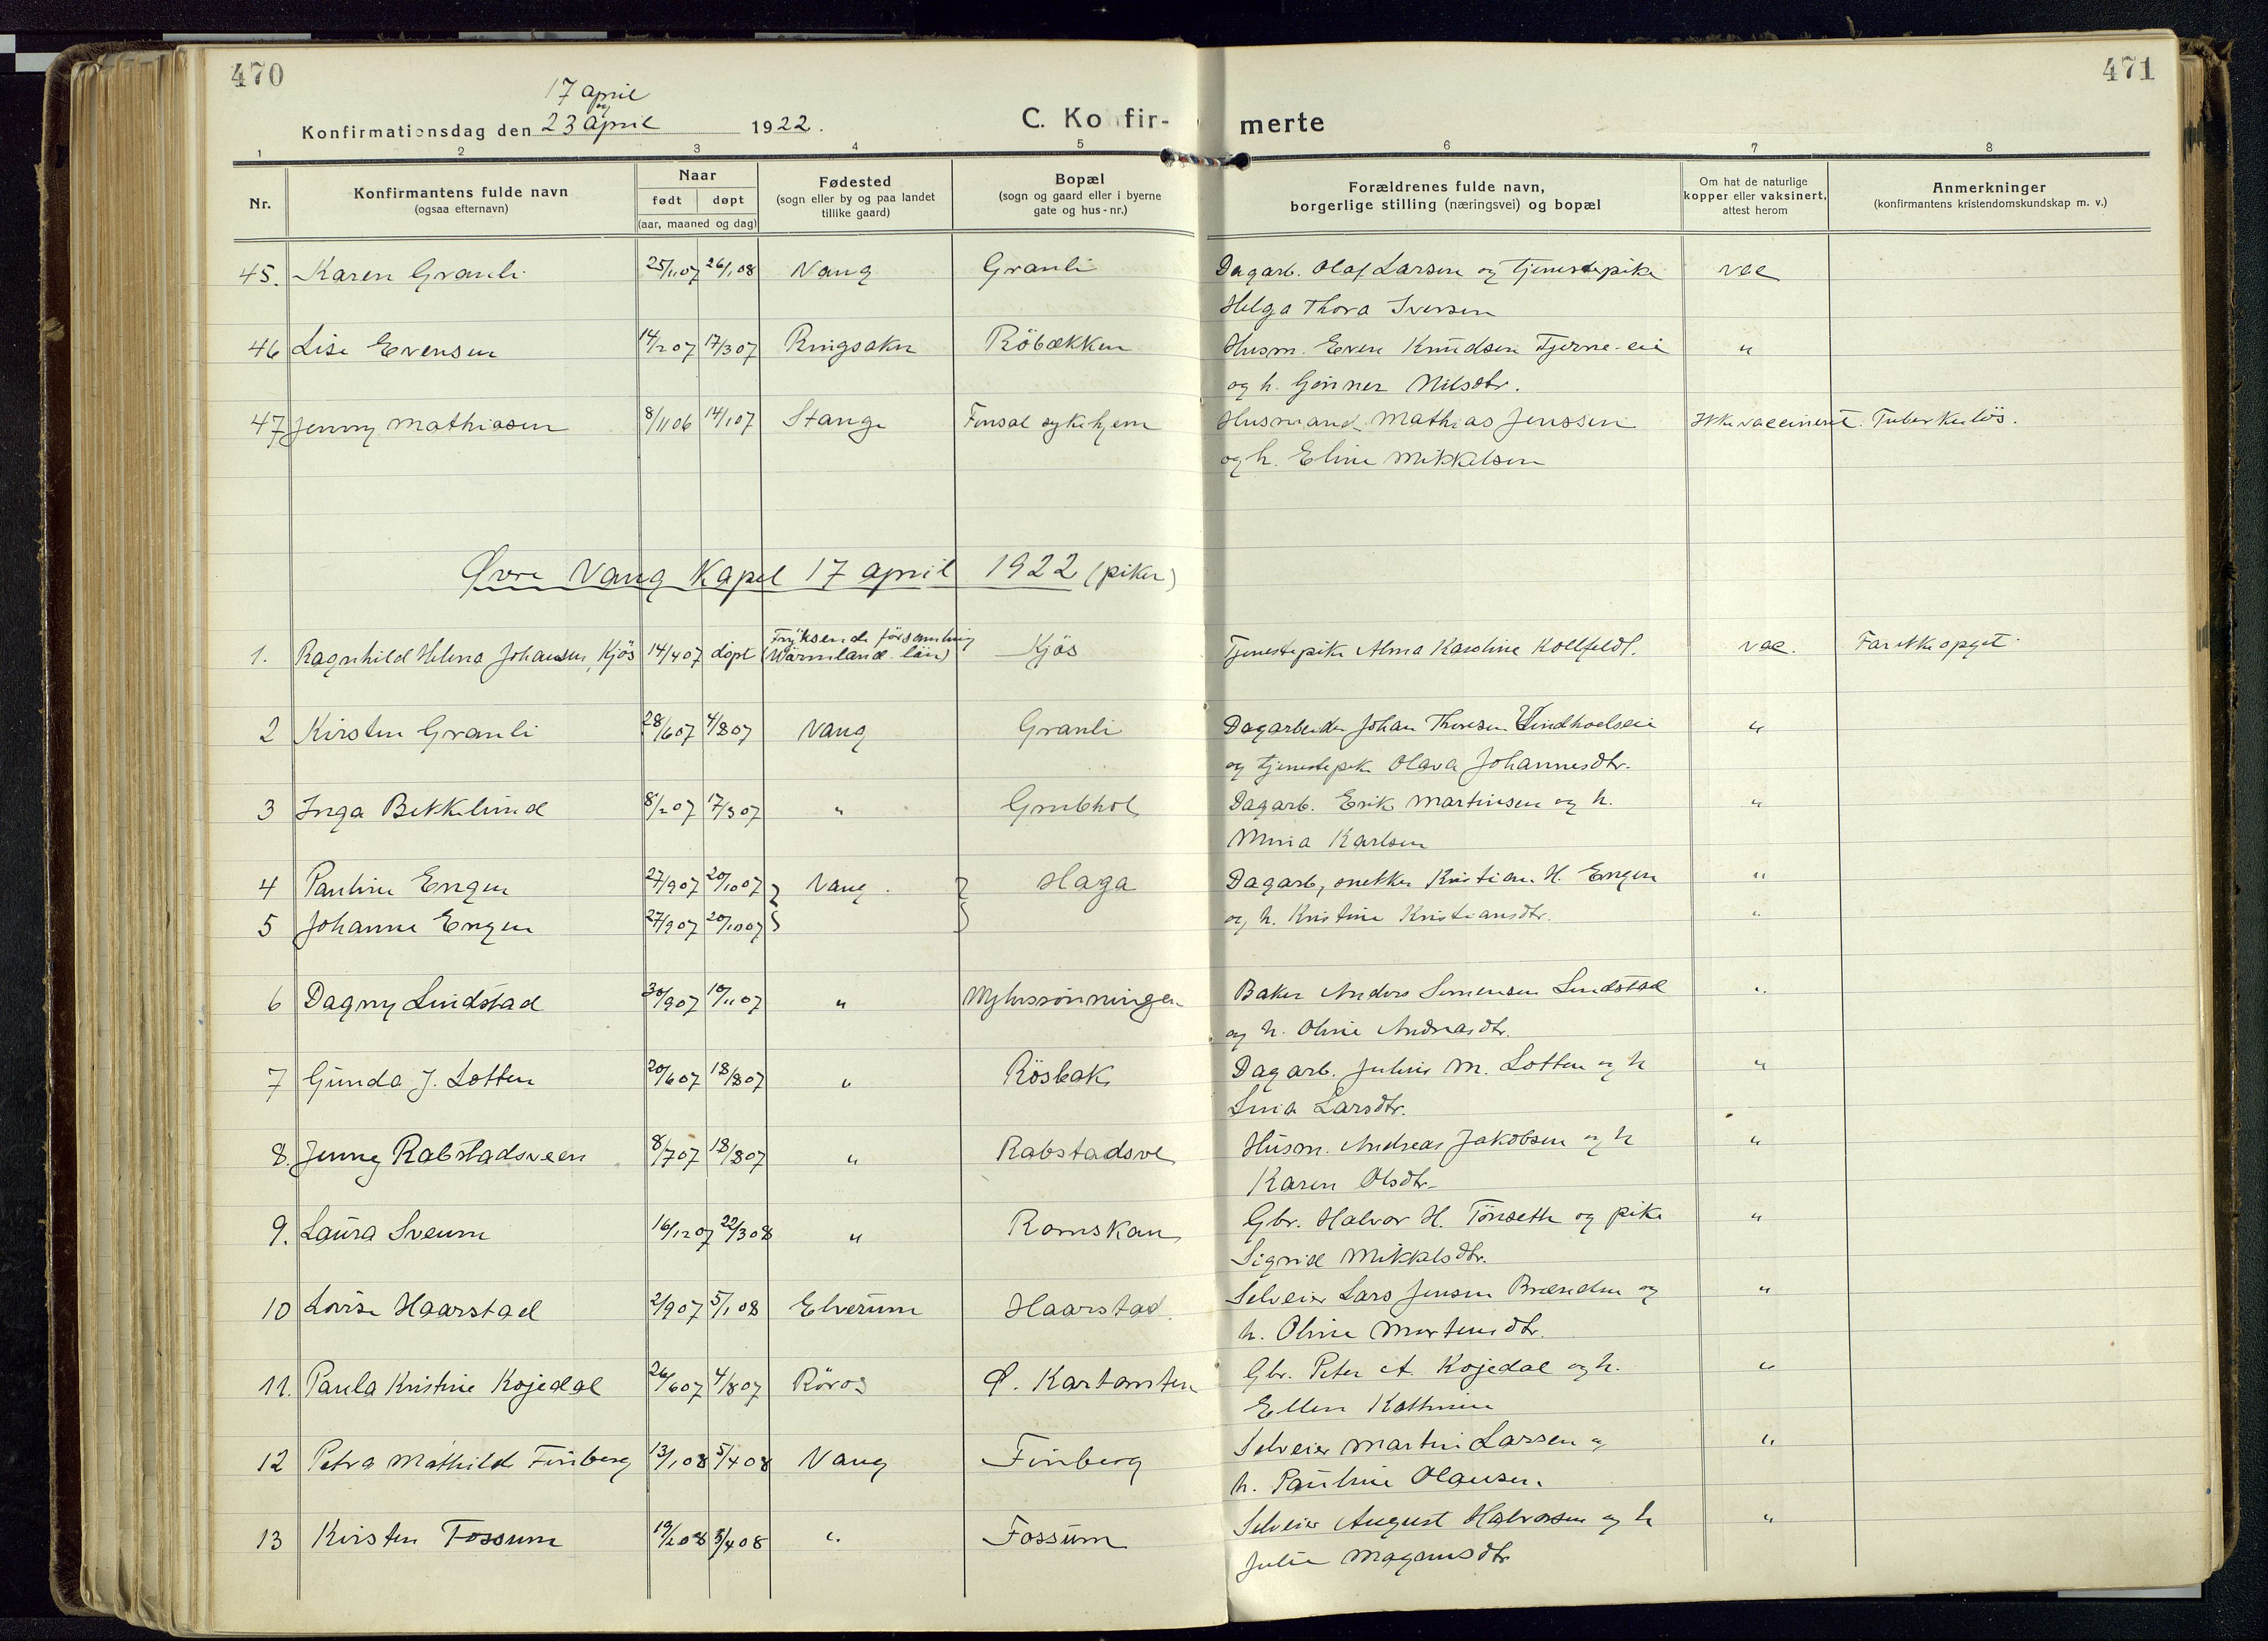 470
471
17 april
og
Konfirmationsdag den 23 april 1922.
C. Konfir-
merte
1 2 3 4 5 6 7 8
Nr.
Konfirmantens fulde navn
(ogsaa efternavn)
Naar
født døpt
(aar, maaned og dag)
Fødested
(sogn eller by og paa landet
tillike gaard)
Bopæl
(sogn og gaard eller i byerne
gate og hus-nr.)
Forældrenes fulde navn,
borgerlige stilling (næringsvei) og bopæl
Om hat de naturlige
kopper eller vaksinert,
attest herom
Anmerkninger
(konfirmantens kristendomskundskap m. v.)
45. Karen Granli 25/11 07 26/1 08 Vang Granli Dagarb. Olaf Larsen og tjenestepike vac
Helga Thora Iversen
46 Lise Evensen 14/2 07 17/3 07 Ringsaker Röbækken Husm. Even Knudsen Tjerne-eie "
og h. Gunner Nilsdtr.
47 Jenny Mathiasen 8/11 06 14/1 07 Stange Finsal sykehjem Husmand Mathias Jenssen Ikke vaccinert. Tuberkulös.
og h. Eline Mikkelsen
Øvre Vang Kapel 17 april 1922 (piker)
1. Ragnhild Helena Johansen, Kjös 14/4 07 döpt Fryksende församling Kjös Tjenestepike Alma Karoline Kollfeldt. vac. Far ikke opgit.
(Wärmland län)
2 Kirsten Granli 28/6 07 4/8 07 Vang Granli Dagarbeider Johan Thoresen Windhoelseie "
og tjenestepike Olava Johannesdtr.
3 Inga Bekkelund 8/2 07 17/3 07 " Grubhol Dagarb. Erik Martinsen og h. "
Mina Karlsen
4 Pauline Engen 27/9 07 20/10 07 } Vang. } Haga Dagarb, snekker Kristian H. Engen "
5 Johanne Engen 27/9 07 20/10 07 } } og h. Kristine Kristiansdtr. "
6 Dagny Lindstad 30/9 07 10/11 07 " Myhrsrønningen Baker Anders Simensen Lindstad "
og h. Oline Andreasdtr.
7 Gunda J. Lotten 20/6 07 18/8 07 " Rösbak Dagarb. Julius M. Lotten og h "
Lina Larsdtr.
8. Jenny Rabstadsveen 8/7 07 18/8 07 " Rabstadsve Husm. Andreas Jakobsen og h "
Karen Olsdtr.
9. Laura Sveum 16/12 07 22/3 08 " Romskau Gbr. Halvor H. Tönseth og pike "
Sigrid Mikkelsdtr.
10 Lovise Haarstad 2/9 07 5/1 08 Elverum Haarstad. Selveier Lars Jensen Brænden og "
h. Oline Mortensdtr.
11. Paula Kristine Kojedal 26/6 07 4/8 07 Röros Ø. Kartomten Gbr. Peter A. Kojedal og h. "
Ellen Kathrine
12 Petra Mathilde Finberg 13/1 08 5/4 08 Vang Finberg Selveier Martin Larsen og "
h. Pauline Olausen.
13 Kirsten Fossum 19/2 08 5/4 08 " Fossum Selveier August Halvorsen og h "
Julie Magnusdtr